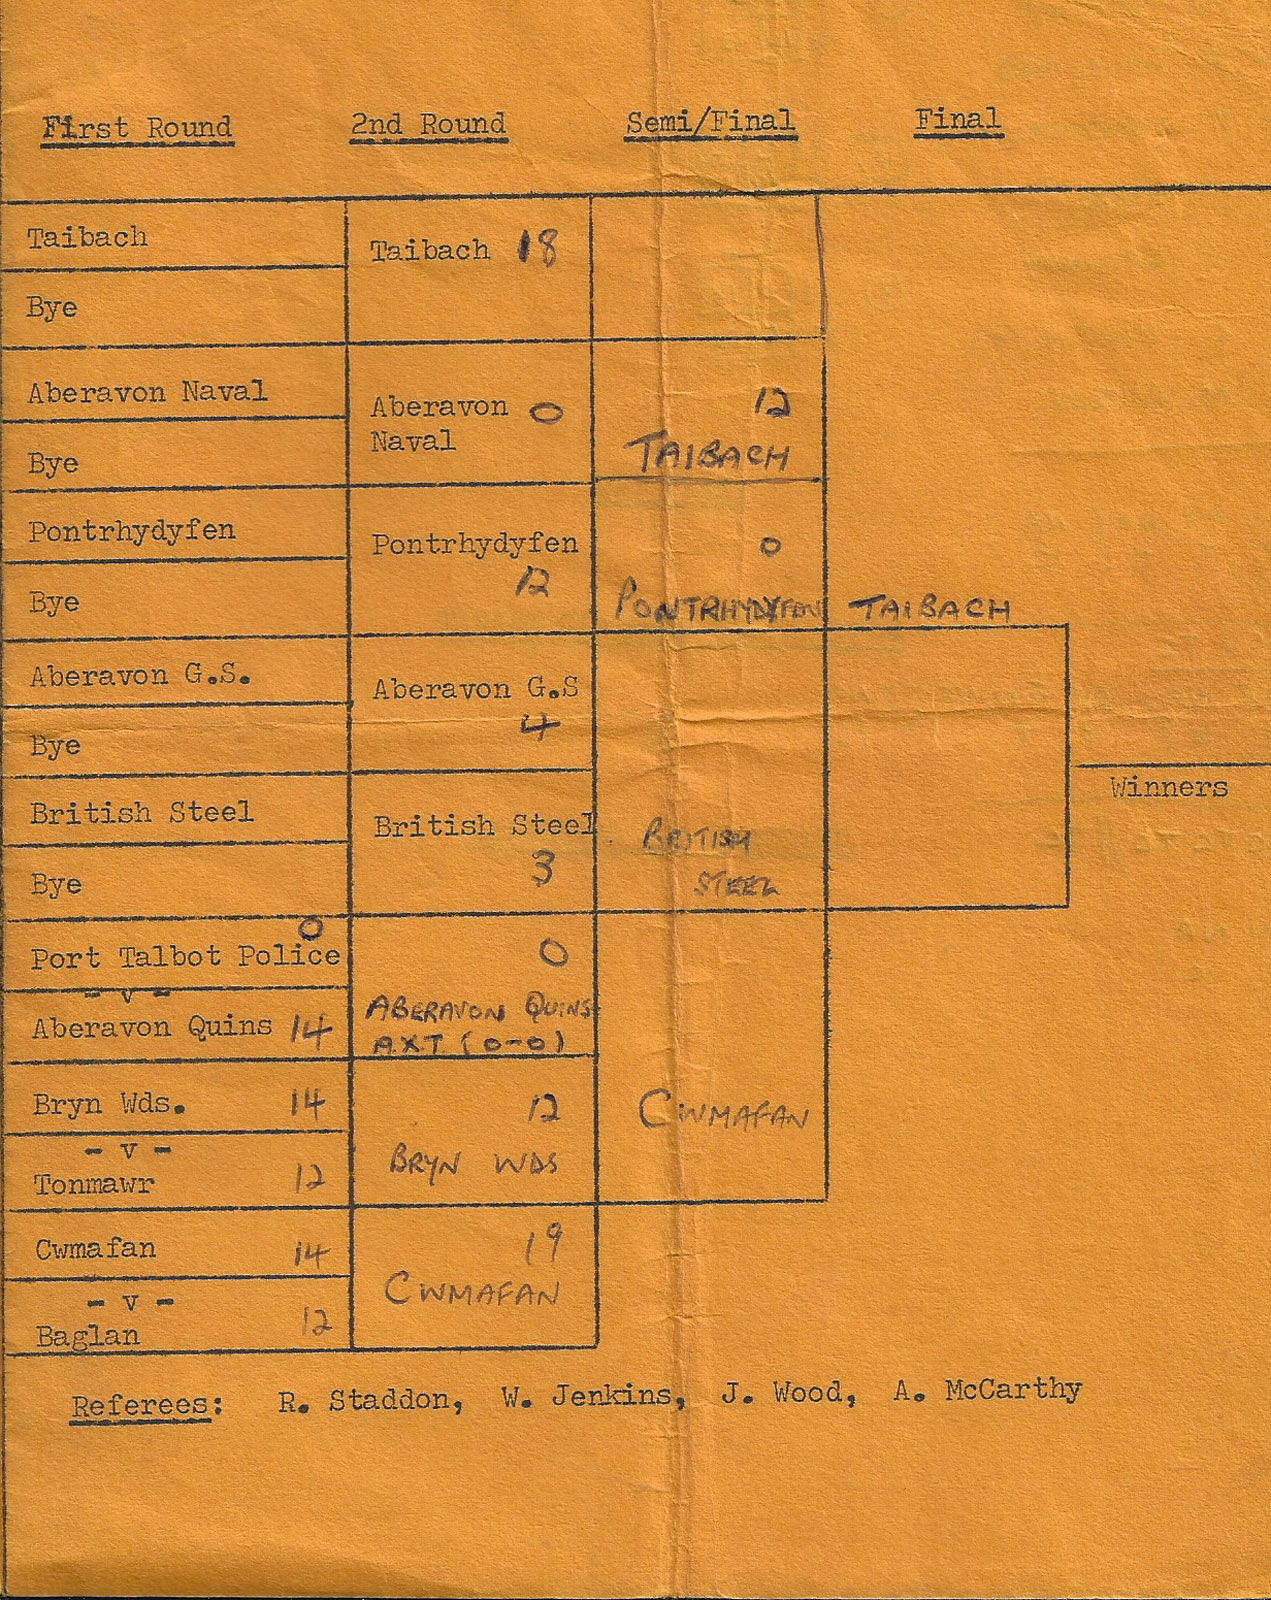 First Round 2nd Round Semi/Final Final
Taibach
Bye
Aberavon Naval
Bye
Pontrhydyfen
Bye
Aberavon G.S.
Bye
British Steel
Bye
0
Port Talbot Police
- v -
Aberavon Quins 14
Bryn Wds. 14
- v -
Tonmawr 12
Cwmafan 14
- v -
Baglan 12
Taibach 18
Aberavon 0
Naval
Pontrhydyfen
12
Aberavon G.S
4
British Steel
3
0
ABERAVON QUINS
A.X.T. (0-0)
12
BRYN WDS
19
CWMAFAN
12
TAIBACH
0
PONTRHYDYFEN
BRITISH
STEEL
CWMAFAN
TAIBACH
Winners
Referees: R. Staddon, W. Jenkins, J. Wood, A. McCarthy